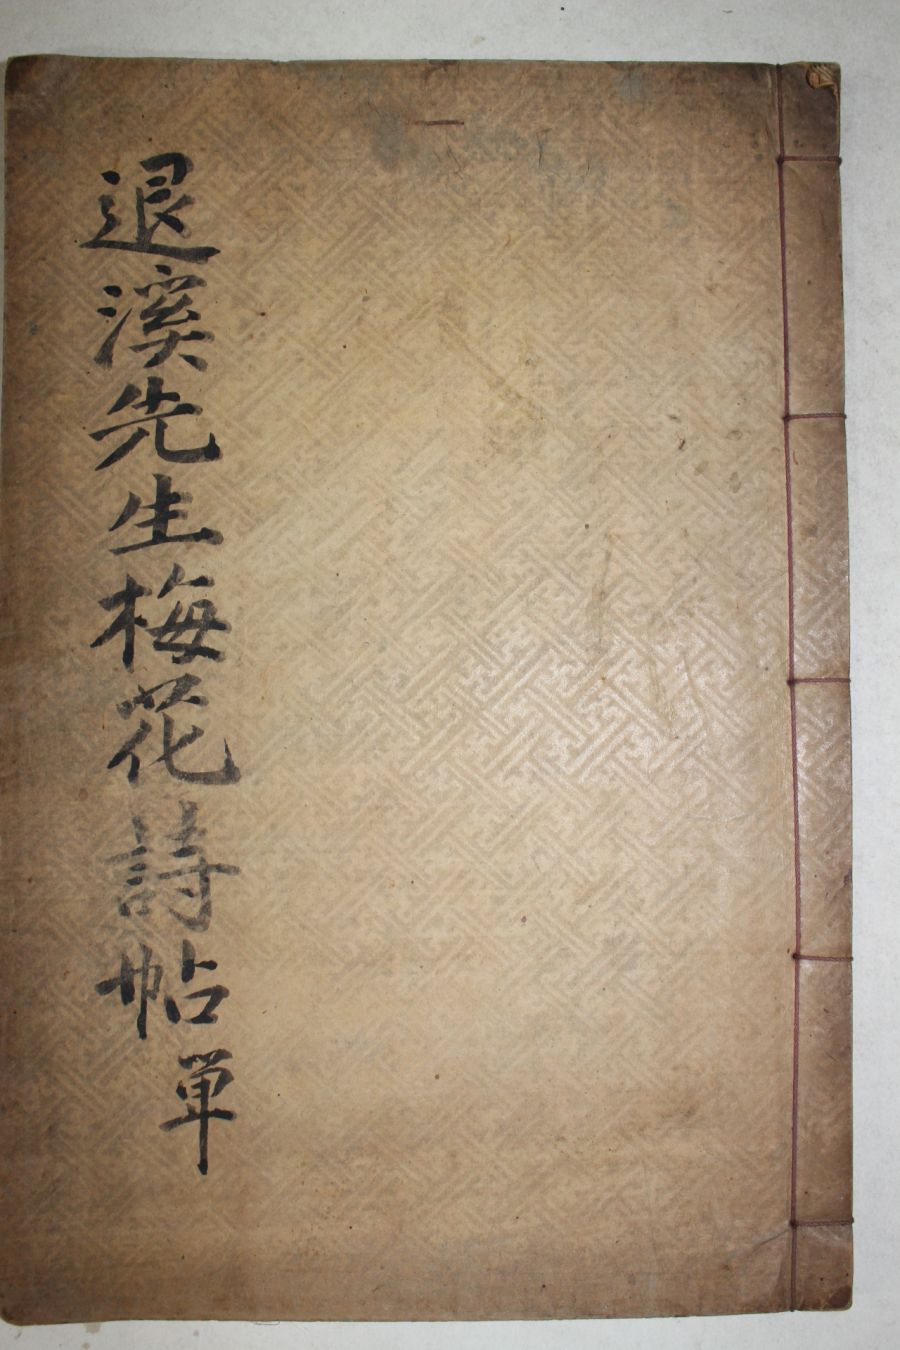 退溪先生梅花詩帖 単